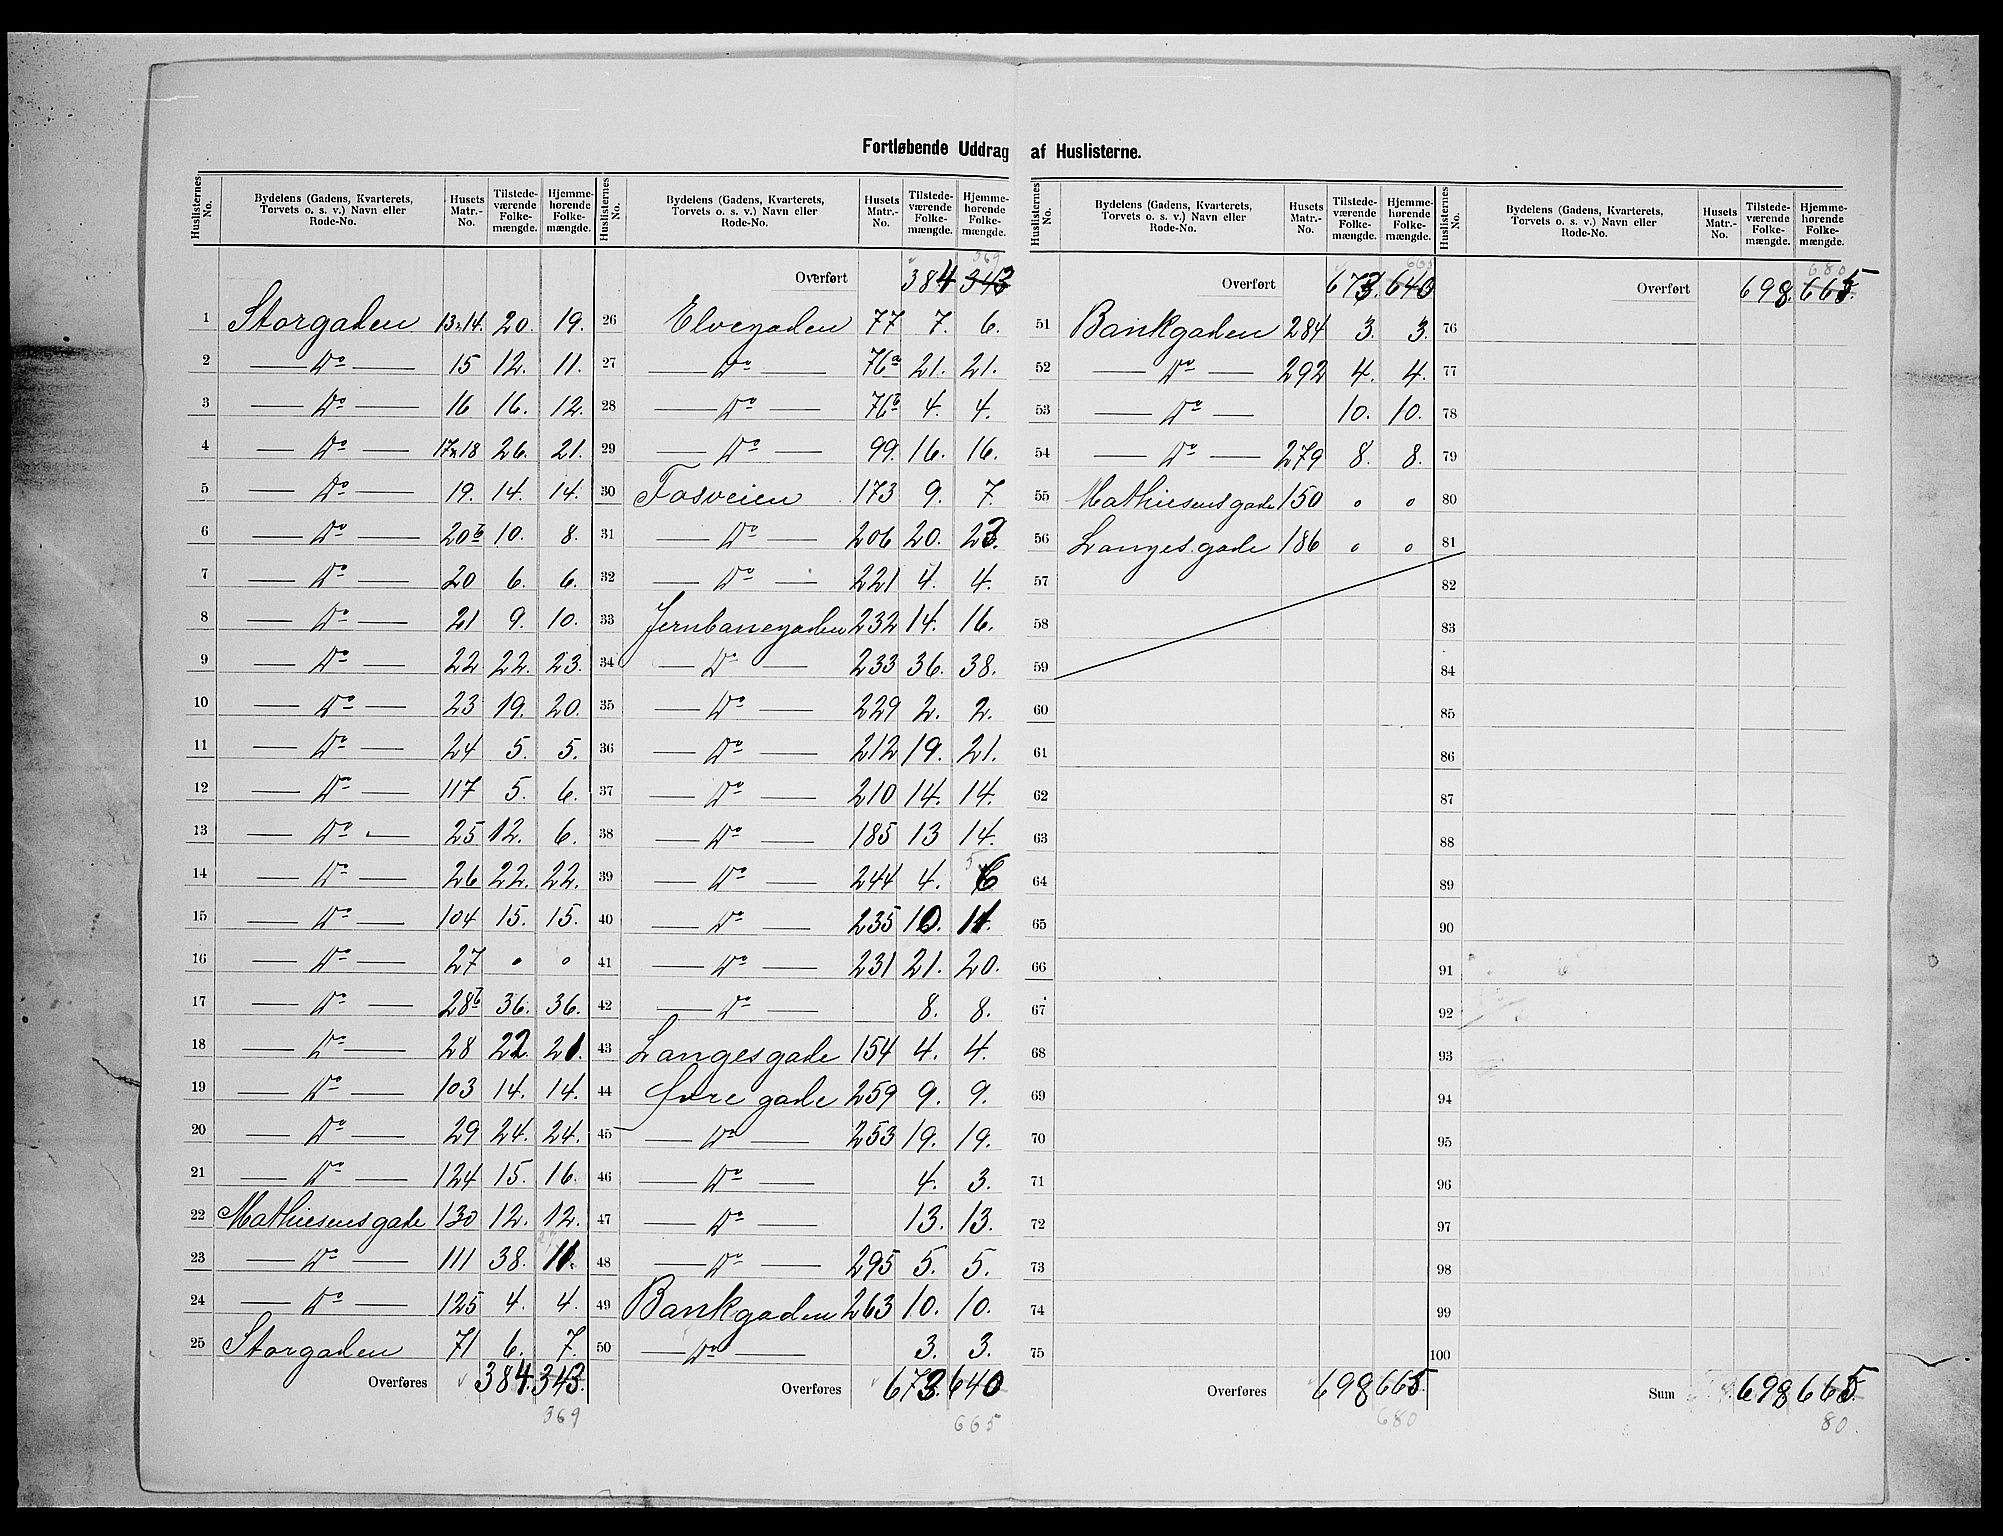 Fortløbende Uddrag af Huslisterne.
Huslisternes No. | Bydelens (Gadens, Kvarterets, Torvets o. s. v.) Navn eller Rode-No. | Husets Matr.-No. | Tilstedeværende Folkemængde. | Hjemmehørende Folkemængde.
1 Storgaden 13 & 14. 20. 19.
2 — Do — 15 12. 11.
3 — Do — 16 16. 12.
4 — Do — 17 & 18 26. 21.
5 — Do — 19. 14. 14.
6 — Do — 20b 10. 8.
7 — Do — 20 6. 6.
8 — Do — 21 9. 10.
9 — Do — 22 22. 23.
10 — Do — 23 19. 20.
11 — Do — 24 5. 5.
12 — Do — 117 5. 6.
13 — Do — 25 12. 6.
14 — Do — 26 22. 22.
15 — Do — 104 15. 15.
16 — Do — 27 0 0
17 — Do — 28b 36. 36.
18 — Do — 28 22. 21.
19 — Do — 103 14. 14.
20 — Do — 29 24. 24.
21 — Do — 124 15. 16.
22 Mathiesens gade 130 12. 12.
23 — Do — 111 38. 11.
24 — Do — 125 4. 4.
25 Storgaden 71 6. 7.
Overføres 384. 343.
369
Huslisternes No. | Bydelens (Gadens, Kvarterets, Torvets o. s. v.) Navn eller Rode-No. | Husets Matr.-No. | Tilstedeværende Folkemængde. | Hjemmehørende Folkemængde.
369
Overført 384 343
26 Elvegaden 77 7. 6.
27 — Do — 76a 21. 21.
28 — Do — 76b 4. 4.
29 — Do — 99. 16. 16.
30 Fosveien 173 9. 7.
31 — Do — 206 20. 23.
32 — Do — 221 4. 4.
33 Jernbanegaden 232 14. 16.
34 — Do — 233 36. 38.
35 — Do — 229 2. 2.
36 — Do — 212 19. 21.
37 — Do — 210 14. 14.
38 — Do — 185 13 14.
39 — Do — 244 4. 5 6
40 — Do — 235 10. 11.
41 — Do — 231 21. 20.
42 — Do — 8. 8.
43 Langes gade 154 4. 4.
44 Øvre gade 259 9. 9.
45 — Do — 253 19. 19.
46 — Do — 4. 3.
47 — Do — 13. 13.
48 — Do — 295 5. 5.
49 Bankgaden 263 10. 10.
50 — Do — 3. 3.
Overføres 673 640
665
Huslisternes No. | Bydelens (Gadens, Kvarterets, Torvets o. s. v.) Navn eller Rode-No. | Husets Matr.-No. | Tilstedeværende Folkemængde. | Hjemmehørende Folkemængde.
665
Overført 673. 640
51 Bankgaden 284 3. 3.
52 — Do — 292 4. 4.
53 — Do — 10. 10.
54 — Do — 279 8. 8.
55 Mathiesens gade 150 0 0
56 Langes gade 186 0 0
57
58
59
60
61
62
63
64
65
66
67
68
69
70
71
72
73
74
75
Overføres 698 665.
680
Huslisternes No. | Bydelens (Gadens, Kvarterets, Torvets o. s. v.) Navn eller Rode-No. | Husets Matr.-No. | Tilstedeværende Folkemængde. | Hjemmehørende Folkemængde.
680
Overført 698. 665.
76
77
78
79
80
81
82
83
84
85
86
87
88
89
90
91
92
93
94
95
96
97
98
99
100
Sum 698 665.
80.